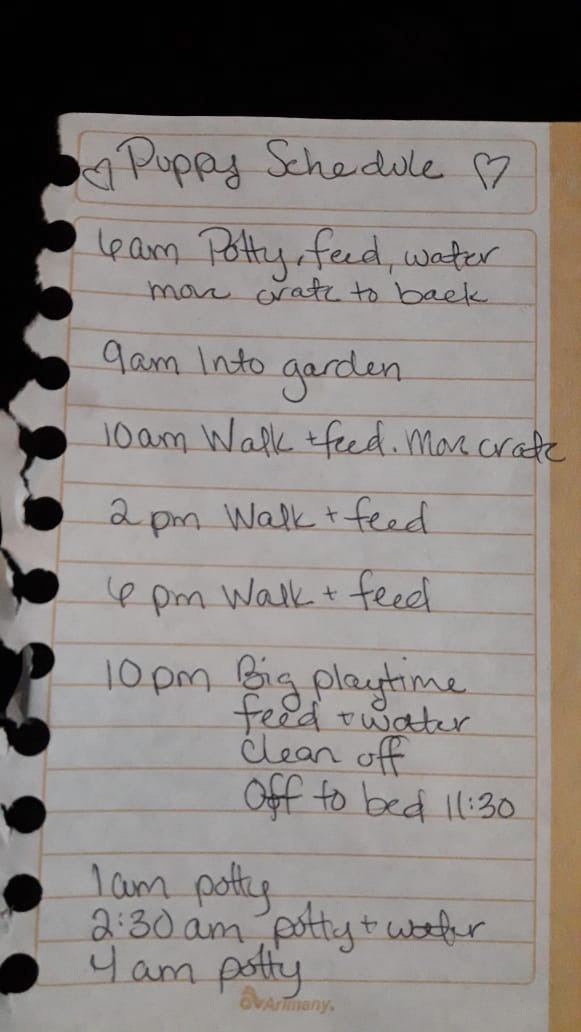 ♡ Puppy Schedule ♡
6am Potty, feed, water
move crate to back
9am Into garden
10am Walk + feed. Move crate
2 pm Walk + feed
6 pm Walk + feed
10 pm Big playtime
feed + water
Clean off
Off to bed 11:30
1am potty
2:30 am potty + water
4 am potty
Arimany.